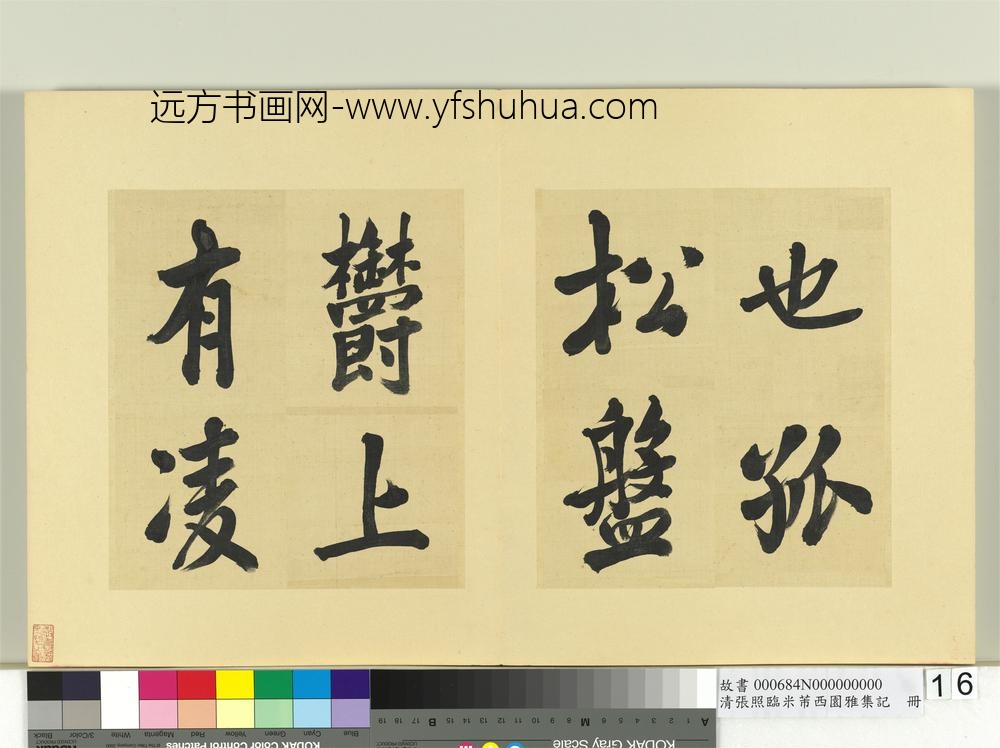 远方书画网-www.yfshuhua.com
也孤
松盤
欝上
有凌
故書 000684N000000000
清張照臨米芾西園雅集記 冊
16
Black
3/Color
White
Magenta
Red
Yellow
Green
Cyan
Blue
KODAK Color Control Patches
KODAK Gray Scale
A 1 2 3 4 5 6 M 8 9 10 11 12 13 14 15 B 17 18 19